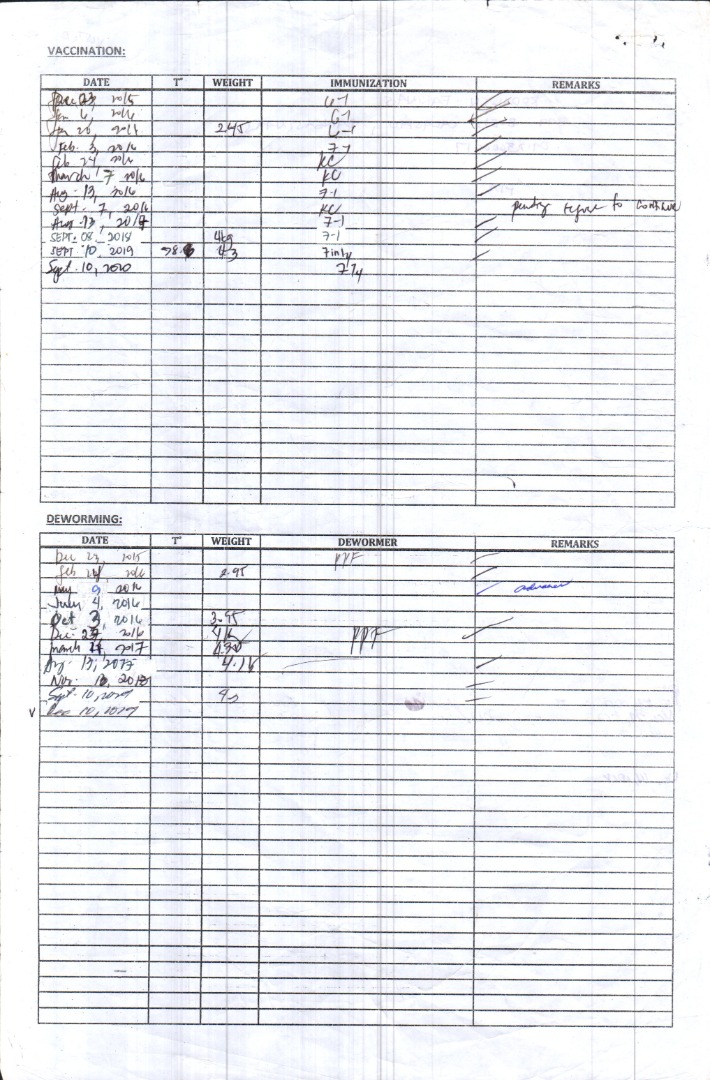 VACCINATION:
DATE T° WEIGHT IMMUNIZATION REMARKS
23, 2015 6-1
Jan 6, 2016 6-1
Jan 20, 2016 2.45 6-1
Feb. 3, 2016 7-1
Feb 24 2016 KC
March 7 2016 KC
Aug. 13, 2016 7-1
Sept. 7, 2016 KC to continue
Aug. 13, 2017 7-1
SEPT. 08, 2018 4kg 7-1
SEPT. 10, 2019 4.3 7in1
Sept. 10, 2020
DEWORMING:
DATE T° WEIGHT DEWORMER REMARKS
Dec 23, 2015 PPF
Feb 24 2016 2.95
9 2016 advance
July 4, 2016
Oct 3, 2016 3.95
Dec. 27 2016 PPF
March 2017
Aug. 13, 2017 4.16
Nov. 2018
Sept. 10,
V Dec 10,